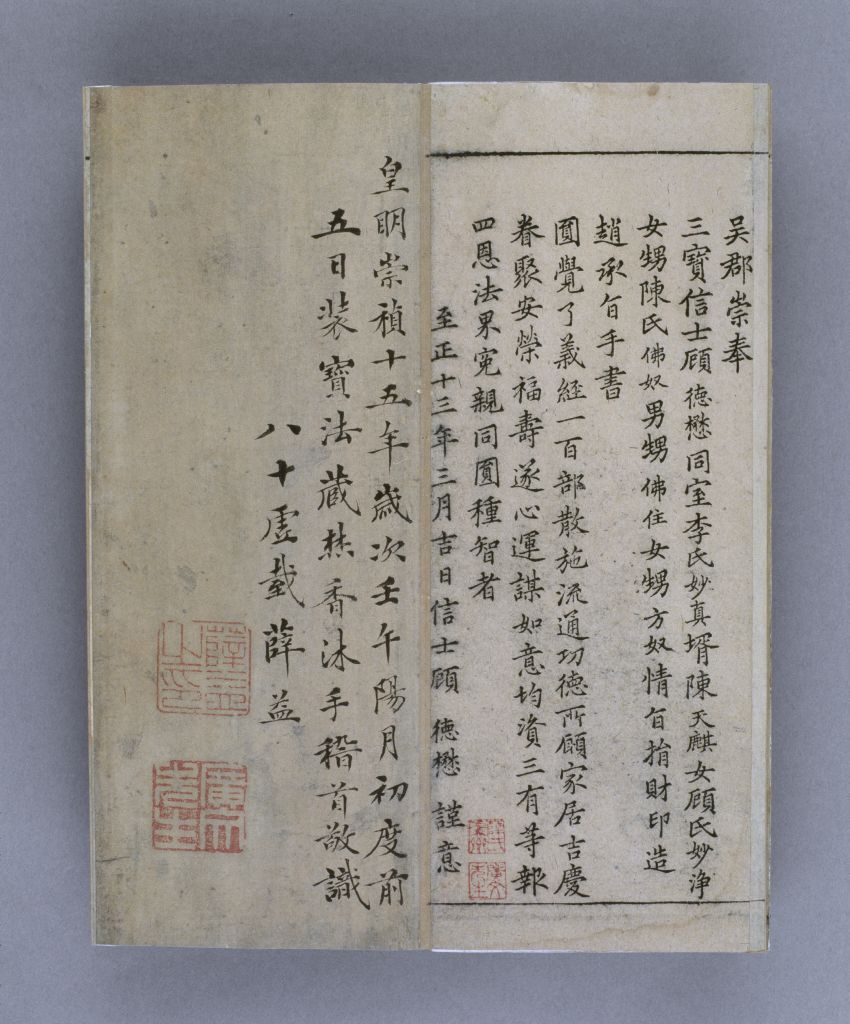 吳郡崇奉
三寶信士顧德懋同室李氏妙真壻陳天麒女顧氏妙淨
女甥陳氏佛奴男甥佛住女甥方奴情旨捐財印造
趙承旨手書
圓覺了義經一百部散施流通功德所願家居吉慶
眷聚安榮福壽遂心運謀如意均資三有等報
四恩法界寃親同圓種智者
至正十三年三月吉日信士顧德懋謹意
皇明崇禎十五年歲次壬午陽月初度前
五日裝寶法藏焚香沐手稽首敬識
八十虛齡薛益
薛益之印